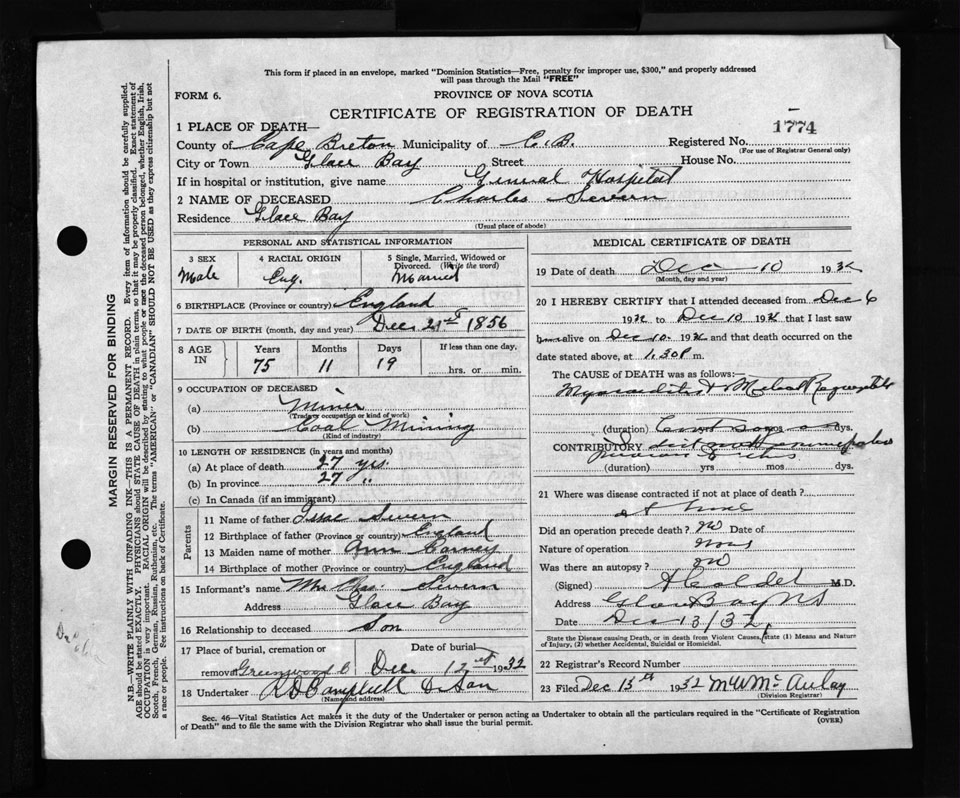 This form if placed in an envelope, marked "Dominion Statistics—Free, penalty for improper use, $300," and properly addressed
will pass through the Mail "FREE"
FORM 6.
PROVINCE OF NOVA SCOTIA
CERTIFICATE OF REGISTRATION OF DEATH
1 PLACE OF DEATH—
1774
County of Cape Breton Municipality of C. B. Registered No.
(For use of Registrar General only)
City or Town Glace Bay Street House No.
If in hospital or institution, give name General Hospital
2 NAME OF DECEASED Charles Severn
Residence Glace Bay
(Usual place of abode)
PERSONAL AND STATISTICAL INFORMATION
3 SEX 4 RACIAL ORIGIN 5 Single, Married, Widowed or Divorced. (Write the word)
Male Eng. Married
6 BIRTHPLACE (Province or country) England
7 DATE OF BIRTH (month, day and year) Dec 21st 1856
8 AGE IN Years Months Days If less than one day.
75 11 19 hrs. or min.
9 OCCUPATION OF DECEASED
(a) Miner
(Trade, occupation or kind of work)
(b) Coal Mining
(Kind of industry)
10 LENGTH OF RESIDENCE (in years and months)
(a) At place of death 27 yrs.
(b) In province 27 "
(c) In Canada (if an immigrant)
Parents
11 Name of father Isac Severn
12 Birthplace of father (Province or country) England
13 Maiden name of mother Ann Barney
14 Birthplace of mother (Province or country) England
15 Informant's name Mrs Chas. Severn
Address Glace Bay
16 Relationship to deceased Son
17 Place of burial, cremation or Date of burial
removal Greenwood C Dec. 12 1932
18 Undertaker R D Campbell & Son
(Name and address)
MEDICAL CERTIFICATE OF DEATH
19 Date of death Dec 10 1932
(Month, day and year)
20 I HEREBY CERTIFY that I attended deceased from Dec 6
1932 to Dec 10 1932 that I last saw
him alive on Dec 10 1932 and that death occurred on the
date stated above, at 1.30 P m.
The CAUSE OF DEATH was as follows:—
Myocarditis & Mitral Regurgitation
(duration) yrs mos dys.
CONTRIBUTORY
(duration) yrs mos dys.
21 Where was disease contracted if not at place of death?
at home
Did an operation precede death? no Date of
Nature of operation none
Was there an autopsy? no
(Signed) M.D.
Address Glace Bay NS
Date Dec 13/32
State the Disease causing Death, or in death from Violent Causes, state (1) Means and Nature
of Injury, (2) whether Accidental, Suicidal or Homicidal.
22 Registrar's Record Number
23 Filed Dec 13th 1932 M W McAulay
(Division Registrar)
Sec. 46—Vital Statistics Act makes it the duty of the Undertaker or person acting as Undertaker to obtain all the particulars required in the "Certificate of Registration
of Death" and to file the same with the Division Registrar who shall issue the burial permit.
(OVER)
MARGIN RESERVED FOR BINDING
N.B.—WRITE PLAINLY WITH UNFADING INK—THIS IS A PERMANENT RECORD. Every item of information should be carefully supplied.
AGE should be stated EXACTLY. PHYSICIANS should STATE CAUSE OF DEATH in plain terms, so that it may be properly classified. Exact statement of
OCCUPATION is very important. RACIAL ORIGIN will be described by stating to what people or race the deceased person belonged, whether English, Irish,
Scotch, French, German, Russian, Ruthenian, etc. The terms "AMERICAN" or "CANADIAN" SHOULD NOT BE USED as they express citizenship but not
a race or people. See instructions on back of Certificate.